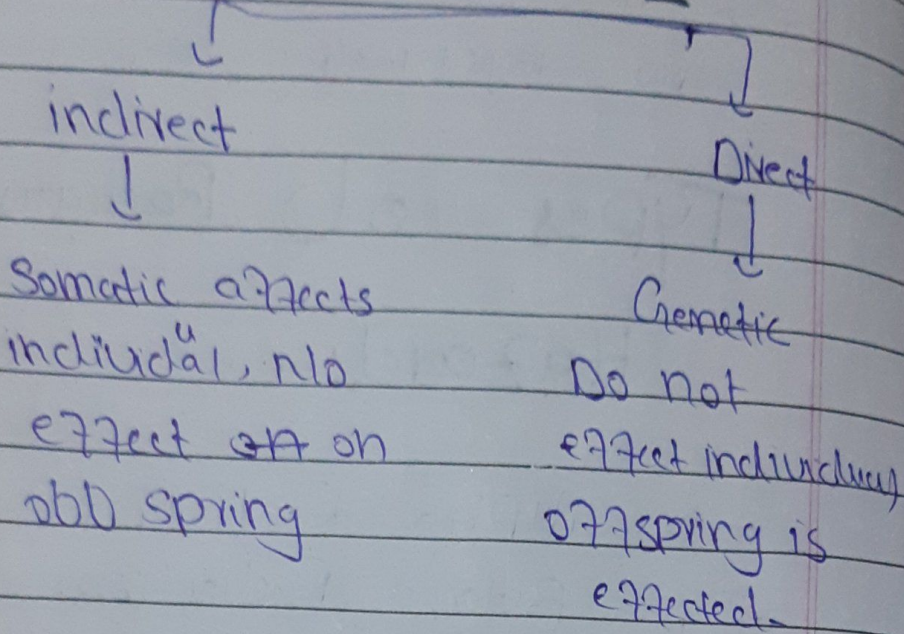 indirect
Direct
Somatic affects
individual, no
effect on on
obb spring
Genetic
Do not
effect individual
offspring is
effected.